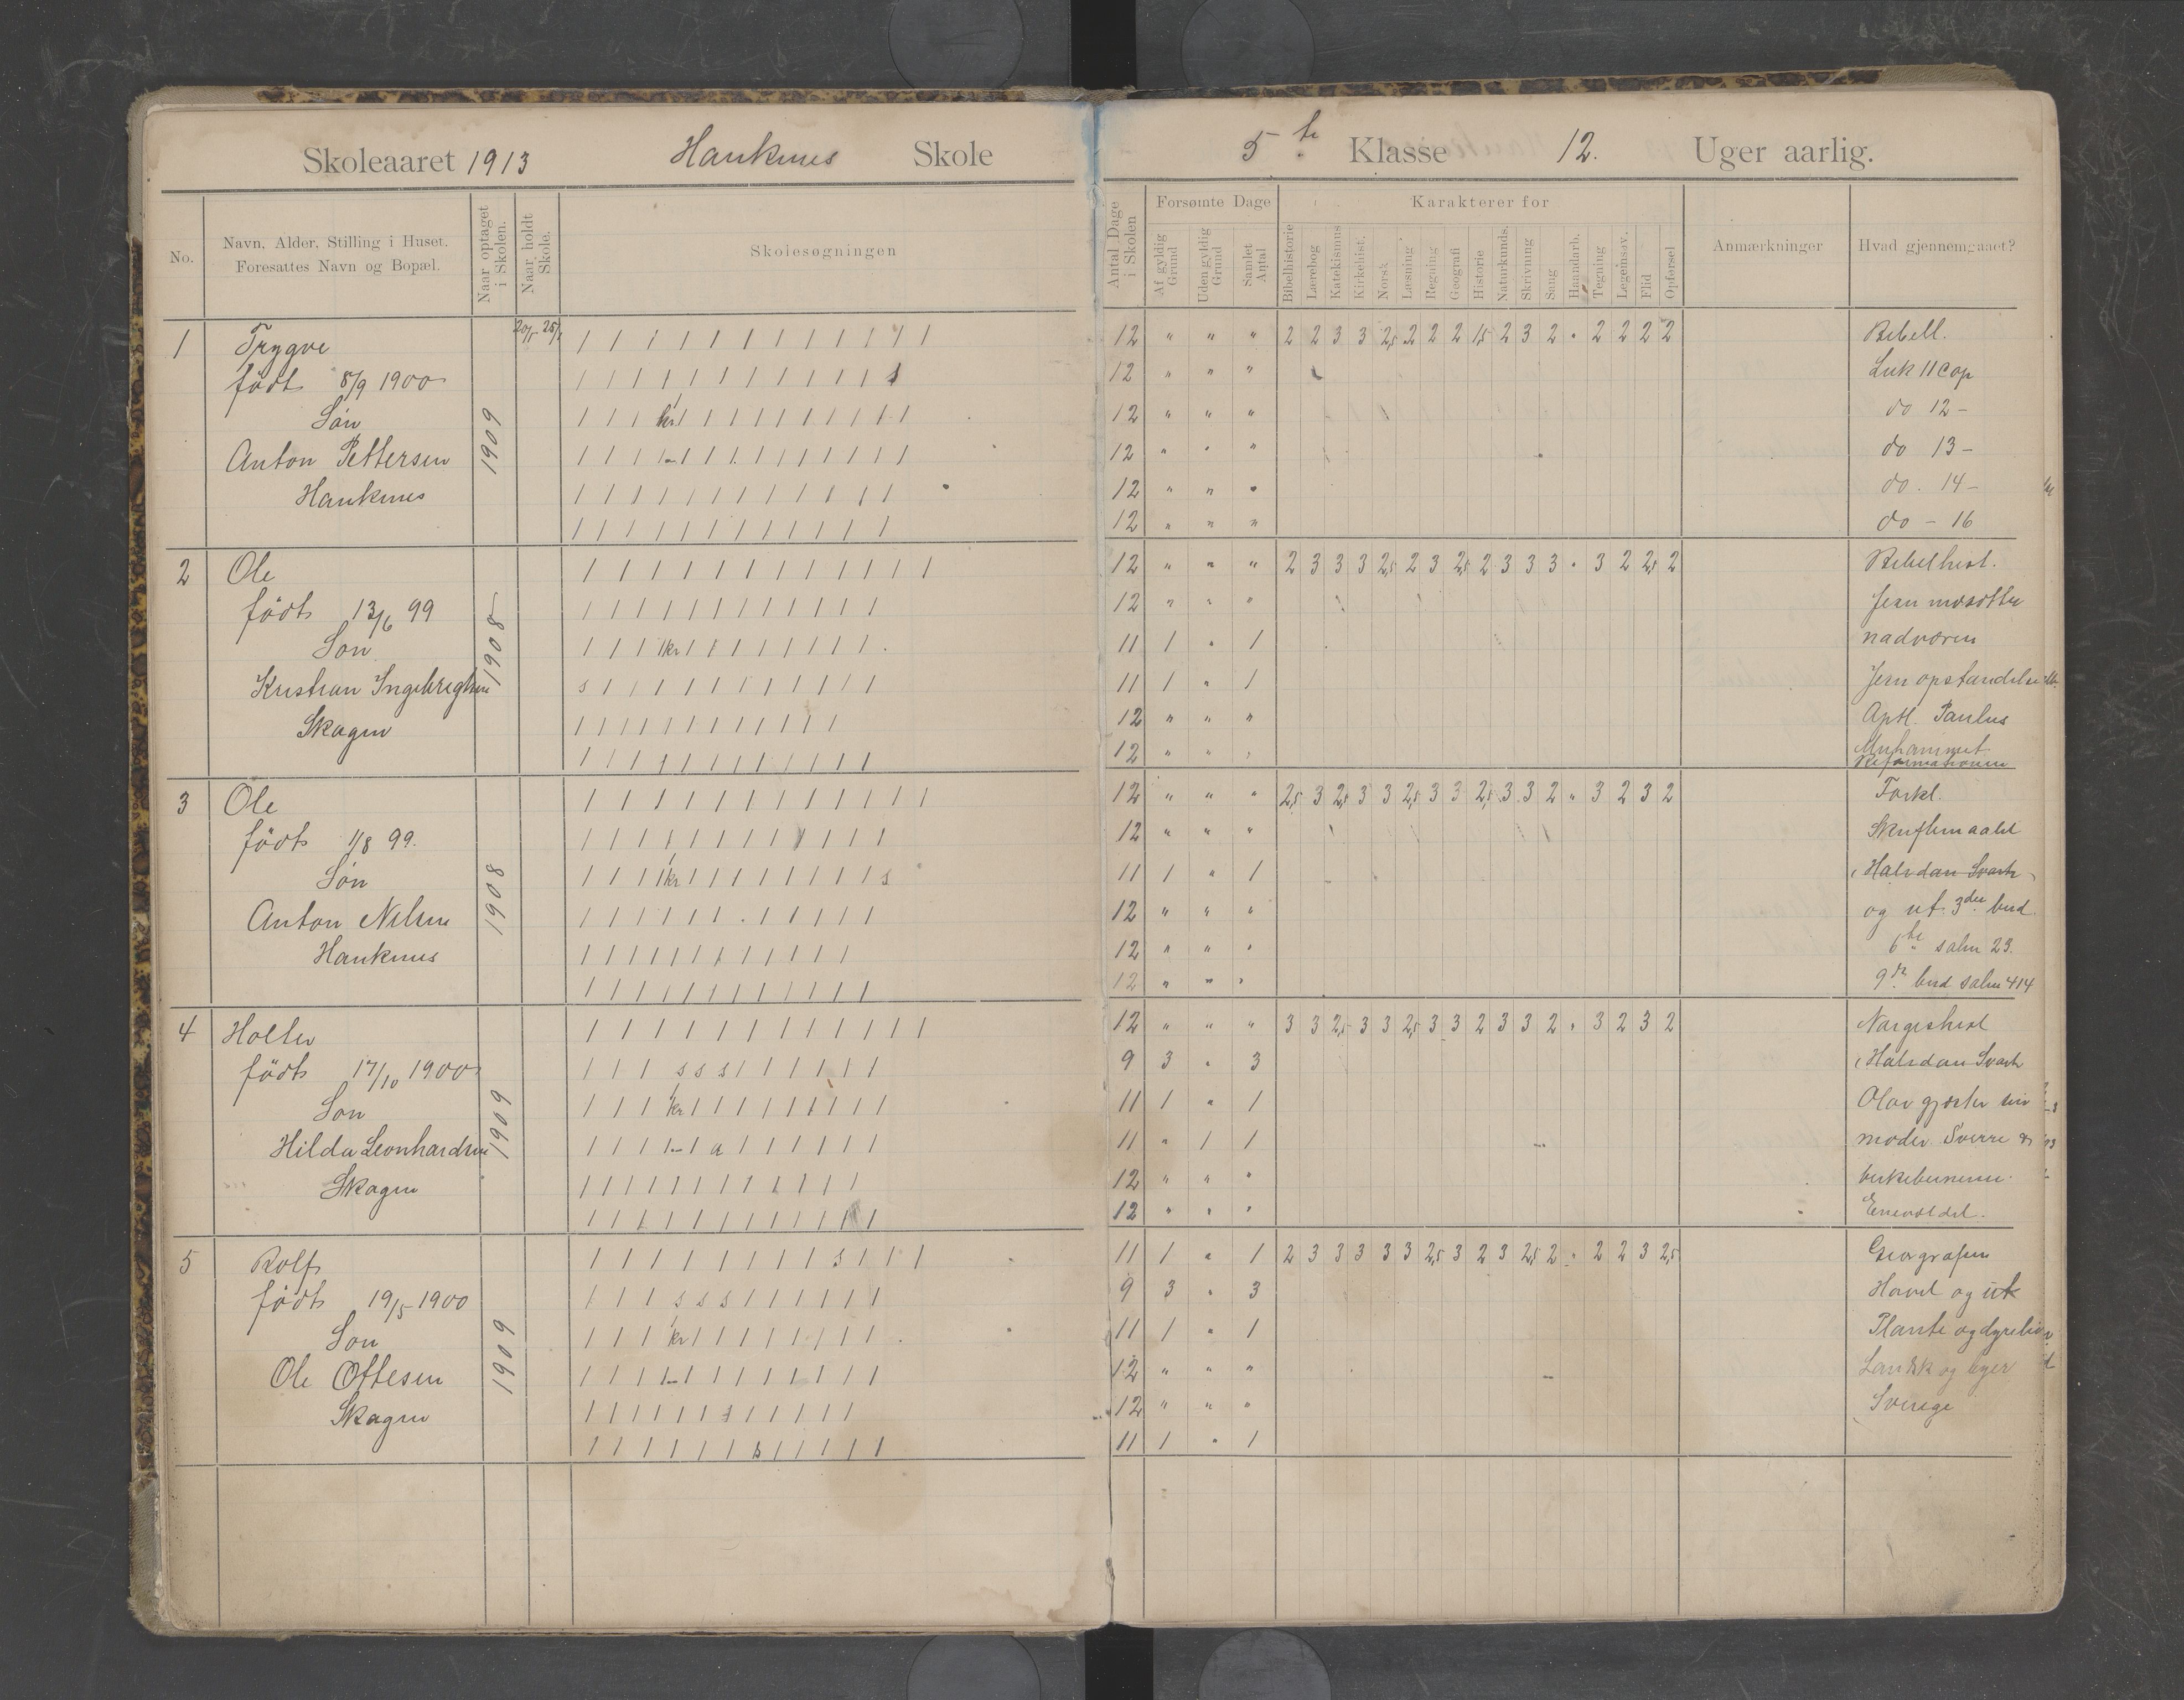 Skoleaaret 1913 Hauknes Skole
5te Klasse 12. Uger aarlig.
No.
Navn, Alder, Stilling i Huset.
Foresattes Navn og Bopæl.
Naar optaget i Skolen.
Naar holdt Skole.
Skolesøgningen
Antal Dage i Skolen
Forsømte Dage
Af gyldig Grund
Uden gyldig Grund
Samlet Antal
Karakterer for
Bibelhistorie
Lærebog
Katekismus
Kirkehist.
Norsk
Læsning
Regning
Geografi
Historie
Naturkunds.
Skrivning
Sang
Haandarb.
Tegning
Legemsøv.
Flid
Opførsel
Anmærkninger
Hvad gjennemgaaet?
1 Trygve 12 " " " 2 2 3 3 2,5 2 2 2 1,5 2 3 2 " 2 2 2 2 Bibell.
født 8/9 1900 12 " " " Luk 11 Cap
Søn 12 " " " do 12 –
Anton Pettersen 1909 12 " " " do 13 –
Hauknes 12 " " " do. 14 –
12 " " " do – 16
2 Ole 12 " " " 2 3 3 3 2,5 2 3 2,5 2 3 3 3 " 3 2 2,5 2 Bibelhist.
født 13/6 99 12 " " "
Søn 1908 11 1 " 1 nadværen
Kristian Ingebrigtsen 11 1 " 1 Jesu opstandelse
Skagen 12 " " " Apst. Paulus
12 " " " Muhammet
Reformationen
3 Ole 12 " " " 2,5 3 2,5 3 3 2,5 3 3 2,5 3 3 2 " 3 2 3 2 Forkl.
født 1/8 99. 12 " " " Skriftemaalet
Søn 1908 11 1 " 1 (Halvdan Svarte)
Anton Nilsen 12 " " " og ut. 3die bud
Hauknes 12 " " " 6te salm 23.
12 " " " 9de bud salm 414
4 Holter 12 " " " 3 3 2,5 3 3 2,5 3 3 2 3 3 2 " 3 2 3 2 Norgeshist
født 17/10 1900 9 3 " 3 (Halvdan Svarte
Søn 1909 11 1 " 1 Olav gjæster sin
Hilda Leonhardsen 11 " 1 1 moder Sverre og
Skagen 12 " " " birkebenerne.
12 " " " Eneveldet.
5 Rolf 11 1 " 1 2 3 3 3 3 3 2,5 3 2 3 2,5 2 " 2 2 3 2,5 Geografien
født 19/5 1900 9 3 " 3 Havet og
Søn 1909 11 1 " 1 Plante og dyreliv
Ole Ottesen 12 " " " Landsk og byer
Skagen 12 " " " Sverige
11 1 " 1